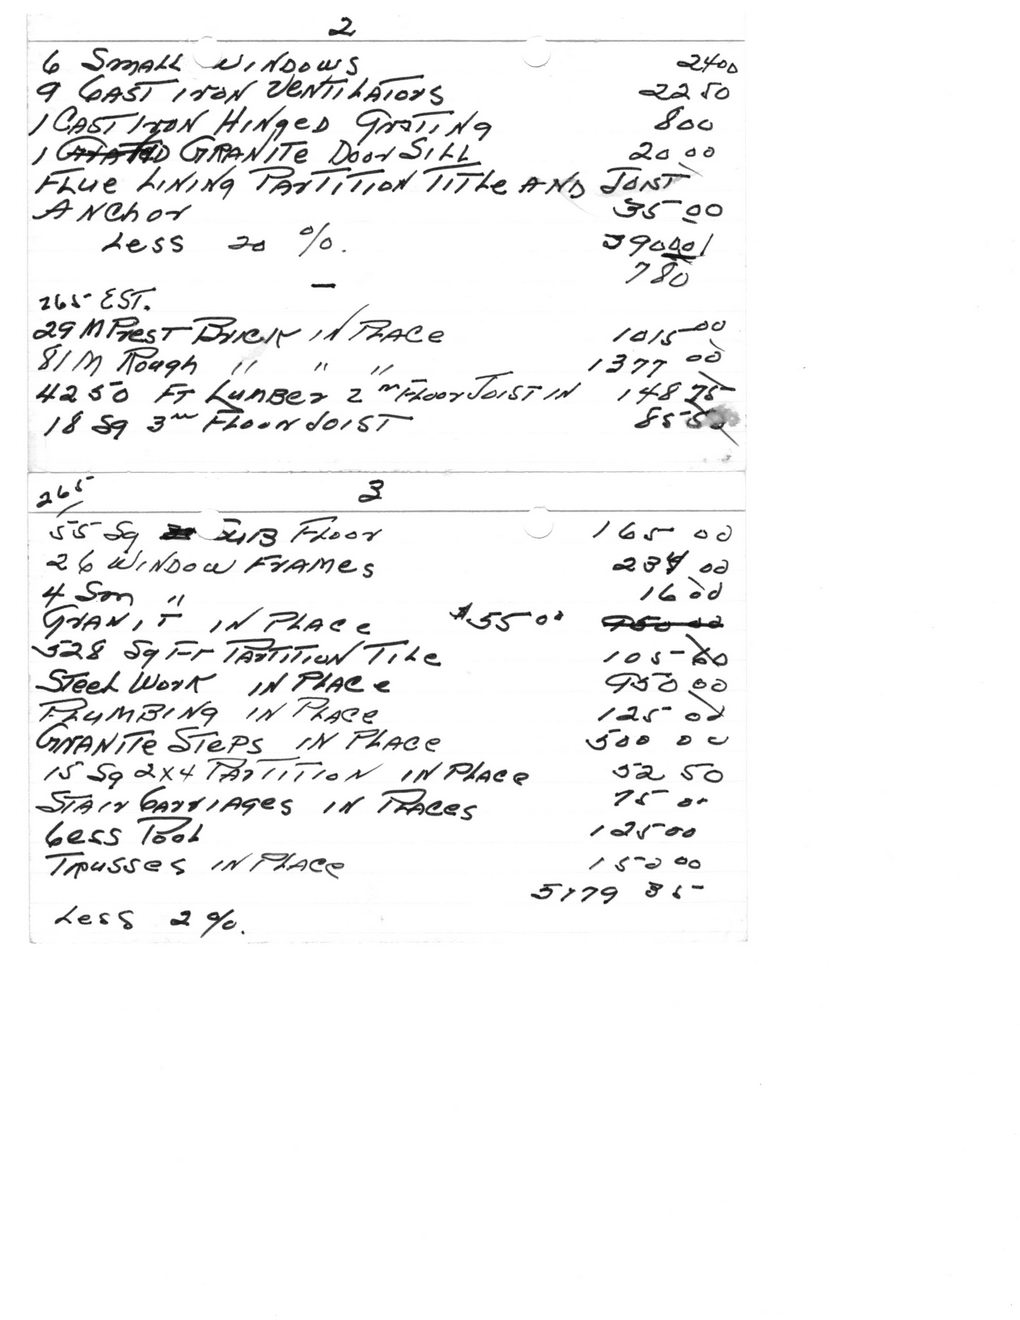 2
6 SMALL WINDOWS 2400
9 CAST IRON VENTILATORS 22 50
1 CAST IRON HINGED GRATING 800
1 GRANITE DOOR SILL 20 00
FLUE LINING PARTITION TITLE AND JOIST
ANCHOR 35 00
LESS 20 %. 39000
780
265 EST.
29 M PREST BRICK IN PLACE 1015 00
81 M ROUGH " " " 1377 00
4250 FT LUMBER 2 FLOOR JOIST IN 148 75
18 SQ 3 FLOOR JOIST 85 50
265
3
55 SQ SUB FLOOR 165 00
26 WINDOW FRAMES 234 00
4 SM " 16 00
GRANIT IN PLACE $55 00 950 00
528 SQ FT PARTITION TILE 105 60
STEEL WORK IN PLACE 950 00
PLUMBING IN PLACE 125 00
GRANITE STEPS IN PLACE 500 00
15 SQ 2X4 PARTITION IN PLACE 52 50
STAIR CARRIAGES IN PLACES 75 00
CESS POOL 125 00
TRUSSES IN PLACE 150 00
5179 35
LESS 2 %.